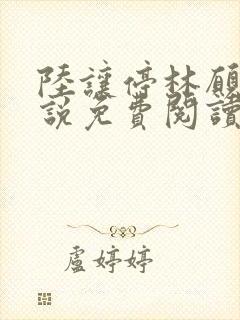 陸讓停林願
說免費閱讀
盧婷婷